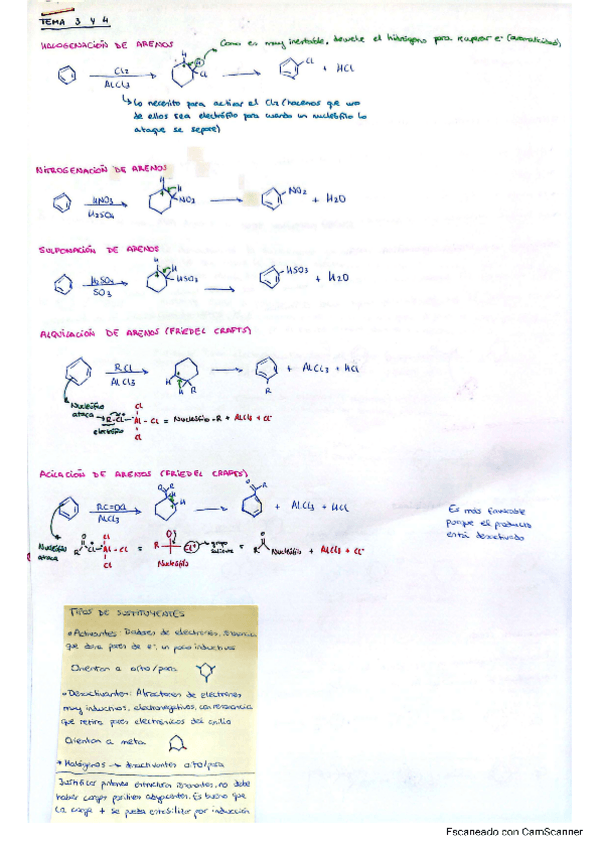 TEMA 3 Y 4
HALOGENACIÓN DE ARENOS
Como es muy inestable, devuelve el hidrógeno para recuperar e- (aromaticidad)
Cl2
AlCl3
H
Cl
Cl
+ HCl
Lo necesito para activar el Cl2 (hacemos que uno
de ellos sea electrófilo para cuando un nucleófilo lo
ataque se separe)
NITROGENACIÓN DE ARENOS
HNO3
H2SO4
H
NO2
NO2
+ H2O
SULFONACIÓN DE ARENOS
H2SO4
SO3
H
HSO3
HSO3
+ H2O
ALQUILACIÓN DE ARENOS (FRIEDEL CRAFTS)
RCl
AlCl3
H
R
R
+ AlCl3 + HCl
Nucleófilo
ataca
R-Cl
Cl
Al - Cl
Cl
= Nucleófilo-R + AlCl3 + Cl-
electrófilo
ACILACIÓN DE ARENOS (FRIEDEL CRAFTS)
RC=OCl
AlCl3
O
R
H
O
R
+ AlCl3 + HCl
Es más favorable
porque el producto
está desactivado
Nucleófilo
ataca
R
O
Cl
Cl
Al - Cl
Cl
=
R
O
Cl
grupo
saliente
Nucleófilo
=
R
O
Nucleófilo + AlCl3 + Cl-
TIPOS DE SUSTITUYENTES
Activantes: Dadores de electrones, resonancia
que dona pares de e-, un poco inductivos
Orientan a orto/para
Desactivantes: Atractores de electrones
muy inductivos, electronegativos, con resonancia
que retira pares electrónicos del anillo
Orientan a meta
Halógenos → desactivantes orto/para
Justificar poniendo estructuras resonantes, no debe
haber cargas positivas adyacentes. Es bueno que
la carga + se pueda estabilizar por inducción
Escaneado con CamScanner